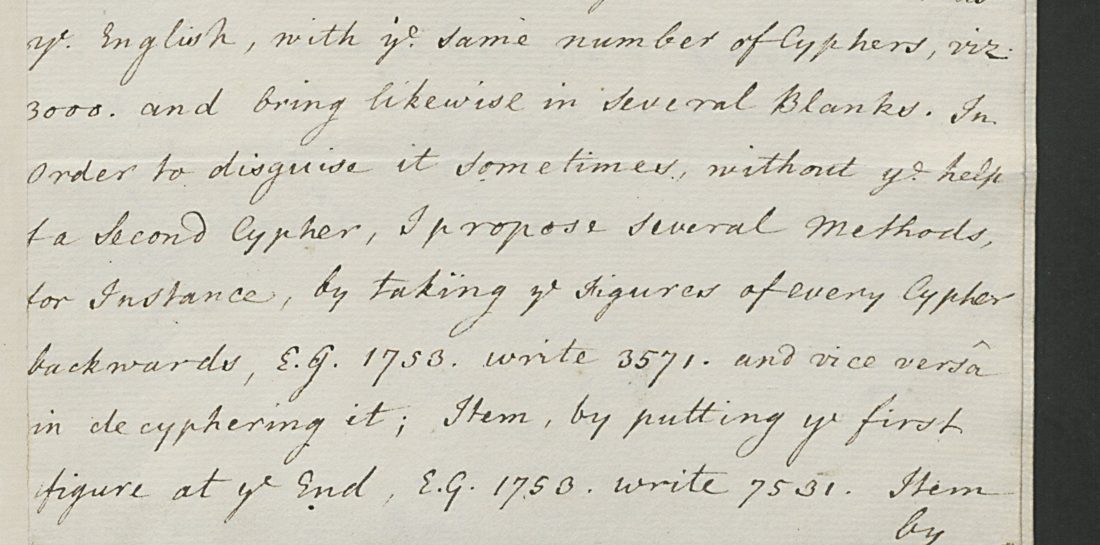 yͤ. English, with yͤ. same number of Cyphers, viz.
3000. and bring likewise in several Blanks. In
Order to disguise it sometimes, without yͤ help
a Second Cypher, I propose several Methods,
for Instance, by takïng yͤ Figures of every Cypher
backwards, E.G. 1753. write 3571. and vice versâ
in decyphering it; Item, by putting yͤ first
figure at yͤ End, E.G. 1753. write 7531. Item
by